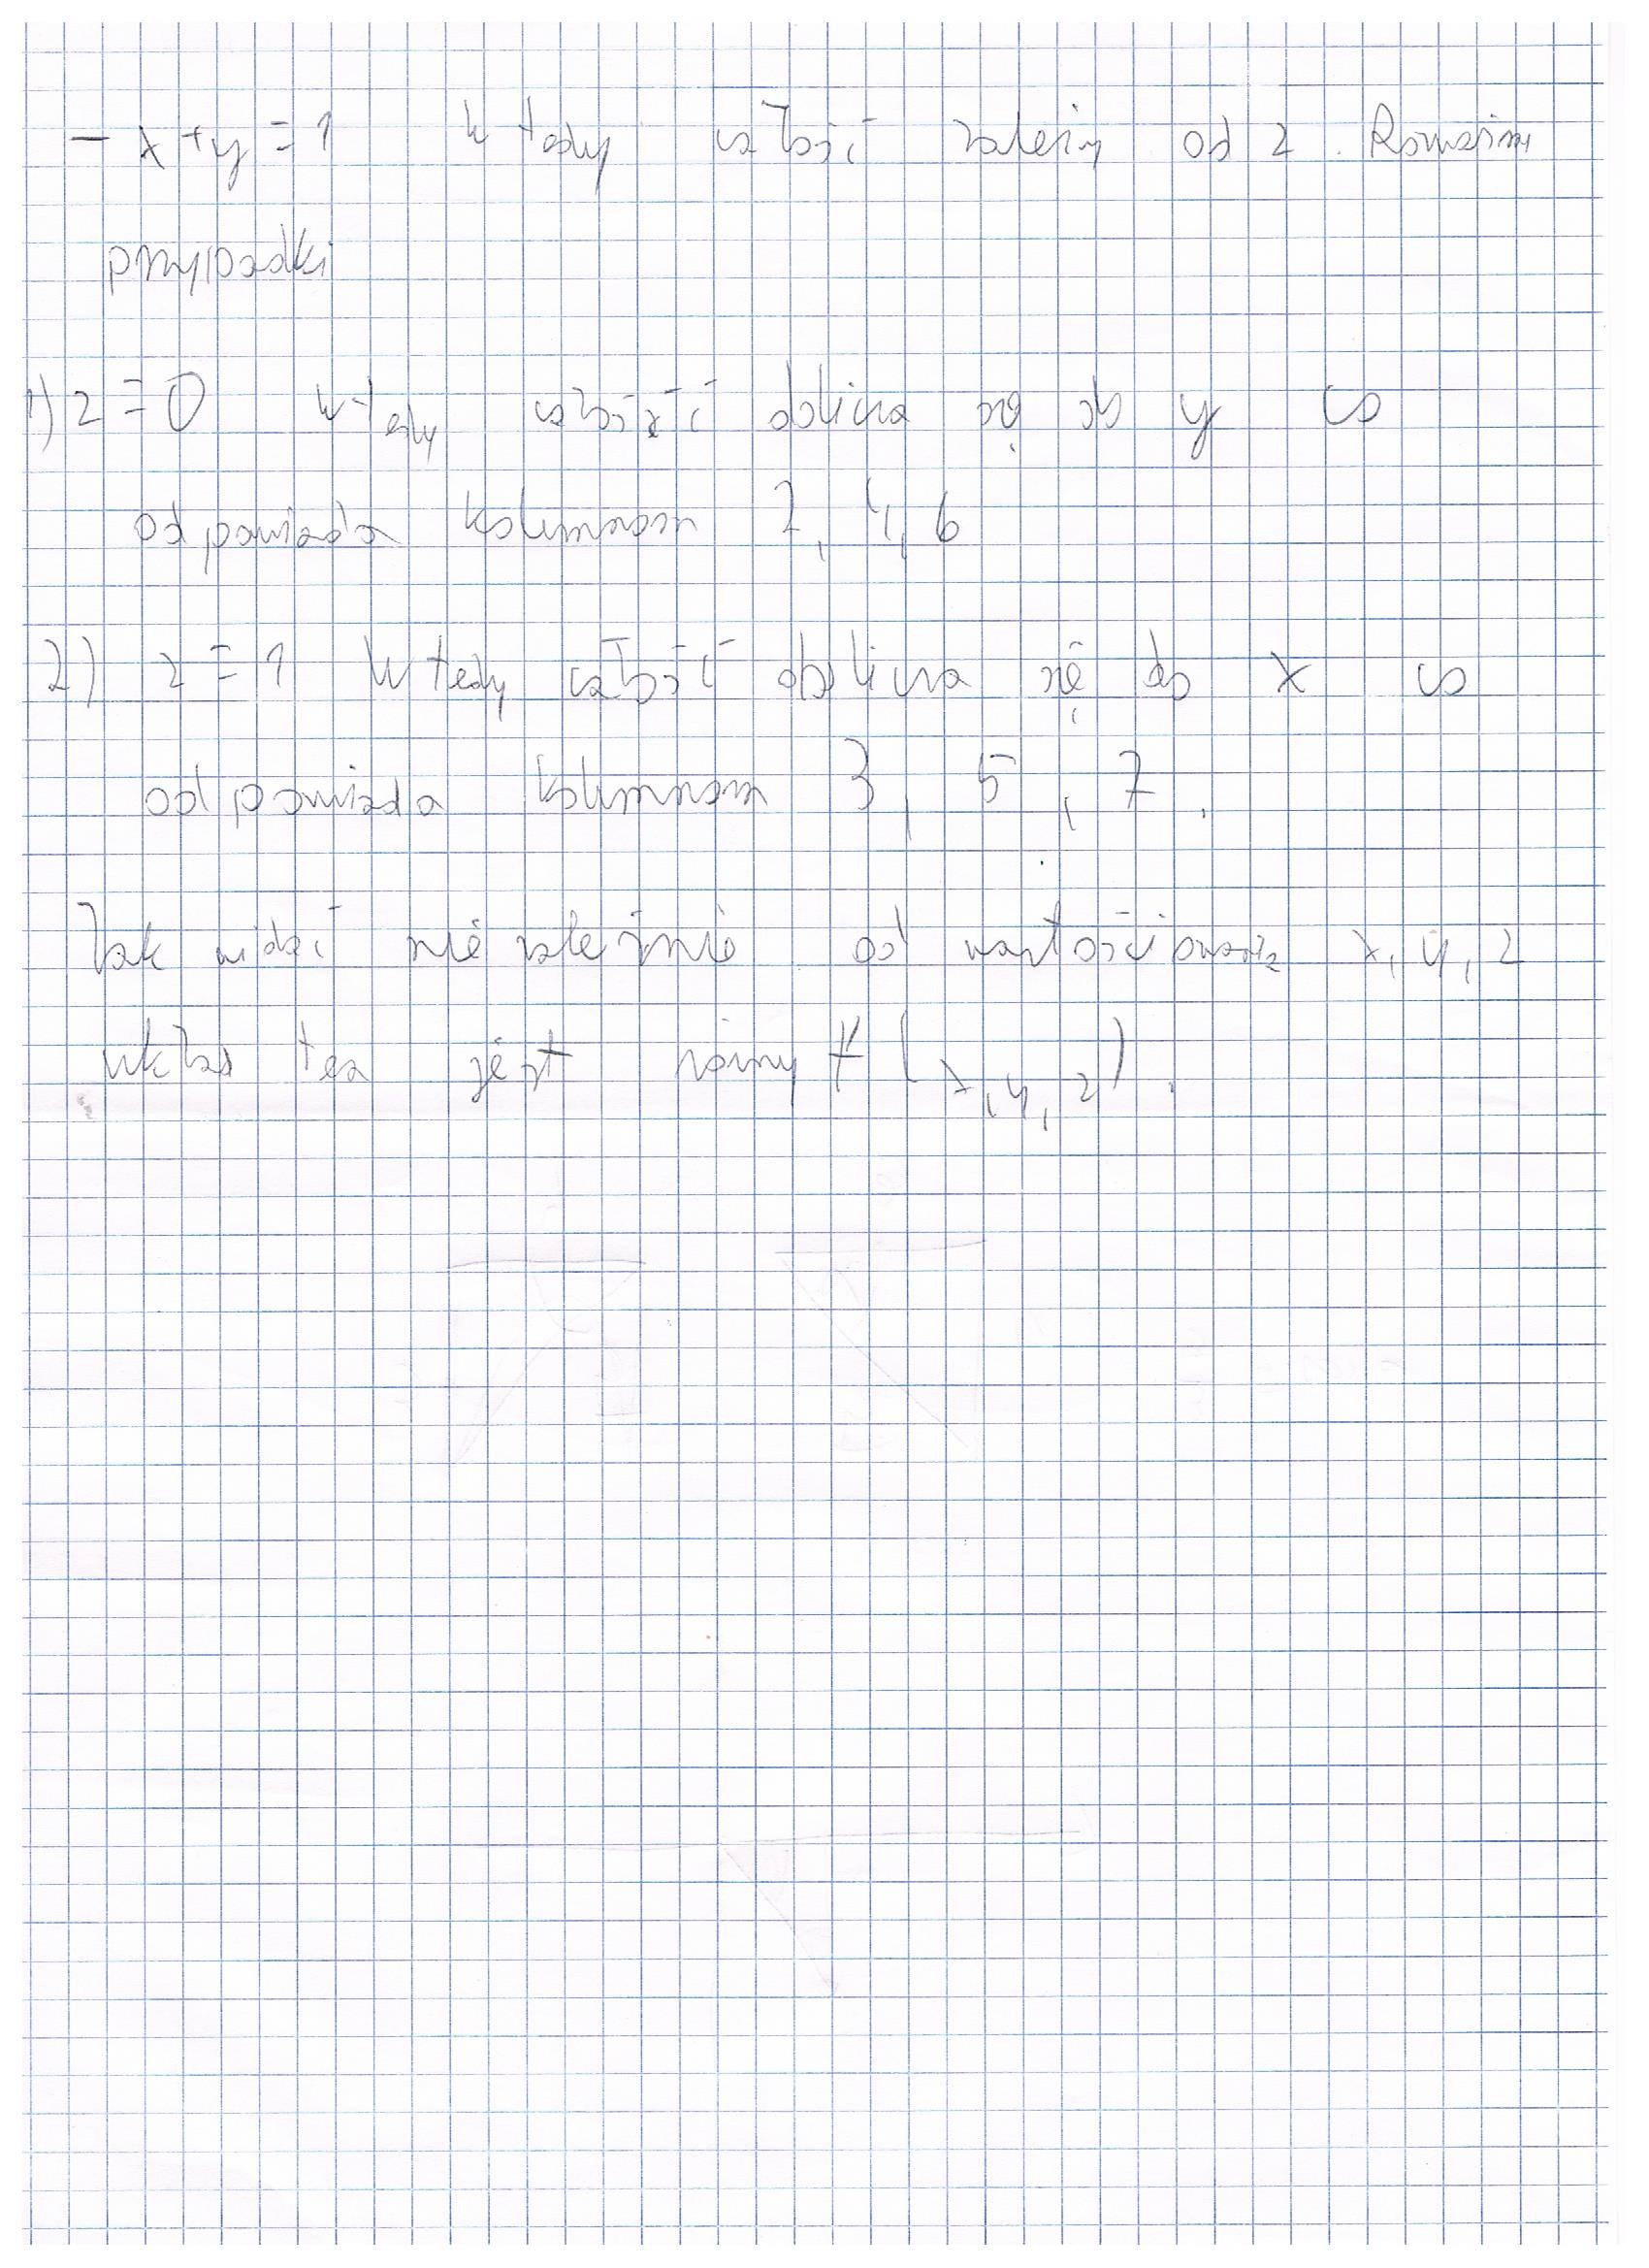 - x+y=1 Wtedy całość zależy od z. Rozważmy
przypadki
1) z=0 Wtedy całość oblicza się do y co
odpowiada kolumnom 2, 4, 6
2) z=1 Wtedy całość oblicza się do x co
odpowiada kolumnom 3, 5, 7.
Jak widać niezależnie od wartościowania x, y, z
układ ten jest równy f(x,y,z).